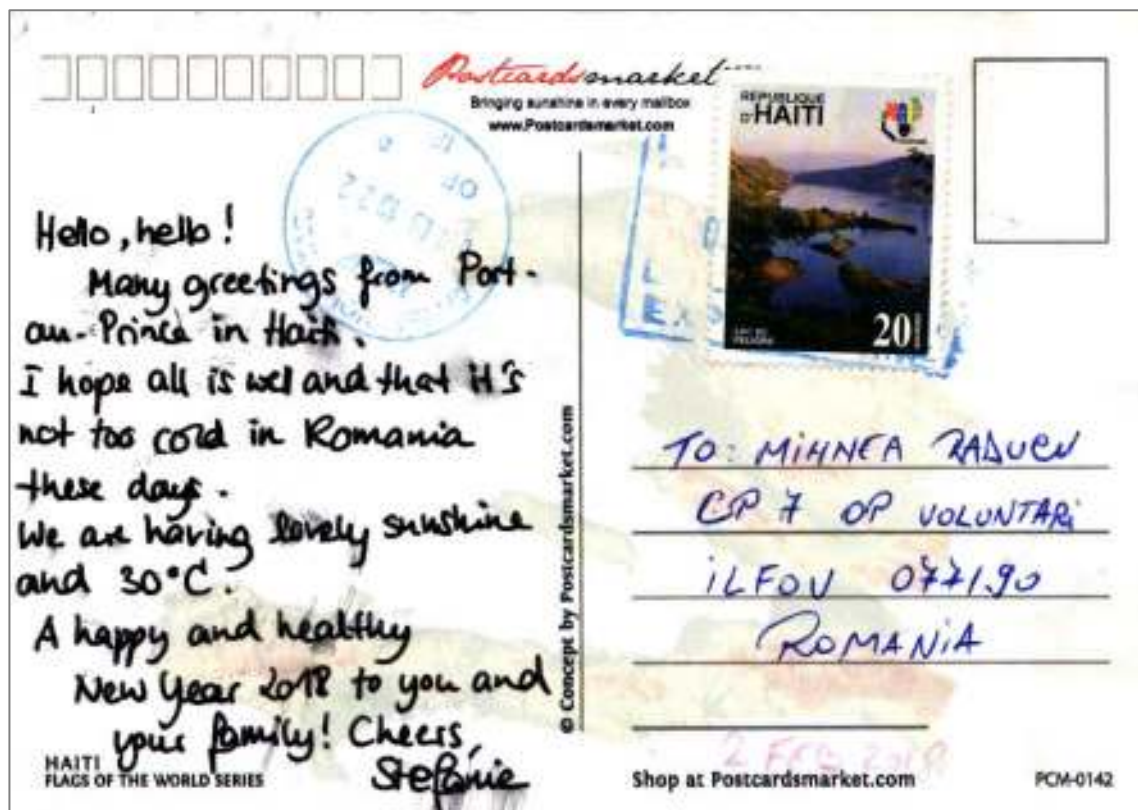 Postcardsmarket
Bringing sunshine in every mailbox
www.Postcardsmarket.com
REPUBLIQUE
D'HAITI
20
Hello, hello!
Many greetings from Port-
au-Prince in Haiti.
I hope all is well and that it's
not too cold in Romania
these days.
We are having lovely sunshine
and 30°C.
A happy and healthy
New Year 2018 to you and
your family! Cheers,
Stefanie
© Concept by Postcardsmarket.com
TO: MIHNEA RADUCU
CP 7 OP VOLUNTARI
ILFOV 077190
ROMANIA
2 FEB 2018
HAITI
FLAGS OF THE WORLD SERIES
Shop at Postcardsmarket.com
PCM-0142